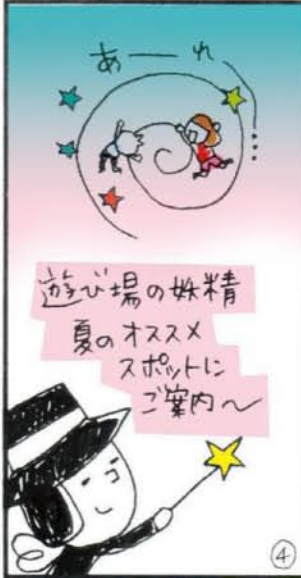 あーれ…
遊び場の妖精
夏のオススメ
スポットに
ご案内～
④